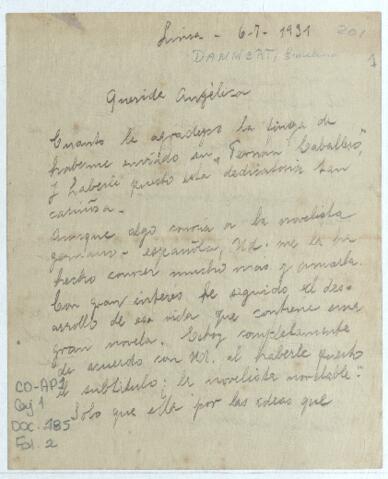 Lima - 6-7- 1931
201
DAMMERT,
1
Querida Angélica
Cuanto le agradezco la fineza de
haberme enviado su "Fernan Caballero",
y haberle puesto esta dedicatoria tan
cariñosa -
Aunque algo conocia a la novelista
germano - española, Ud. me la ha
hecho conocer mucho mas y amarla.
Con gran interes he seguido el des-
arrollo de esa vida que contiene una
gran novela. Estoy completamente
de acuerdo con Ud. al haberle puesto
el subtitulo: la novelista novelable."
Solo que ella por las ideas que
CO-AP1
Caj 1
DOC. 185
Fol. 2